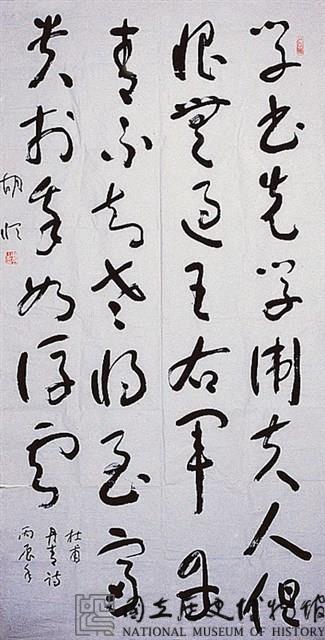 學書先學衛夫人但
恨無過王右軍丹
青不知老將至富
貴於我如浮雲
杜甫
丹青詩
丙辰年
胡
國立歷史博物館
NATIONAL MUSEUM OF HISTORY